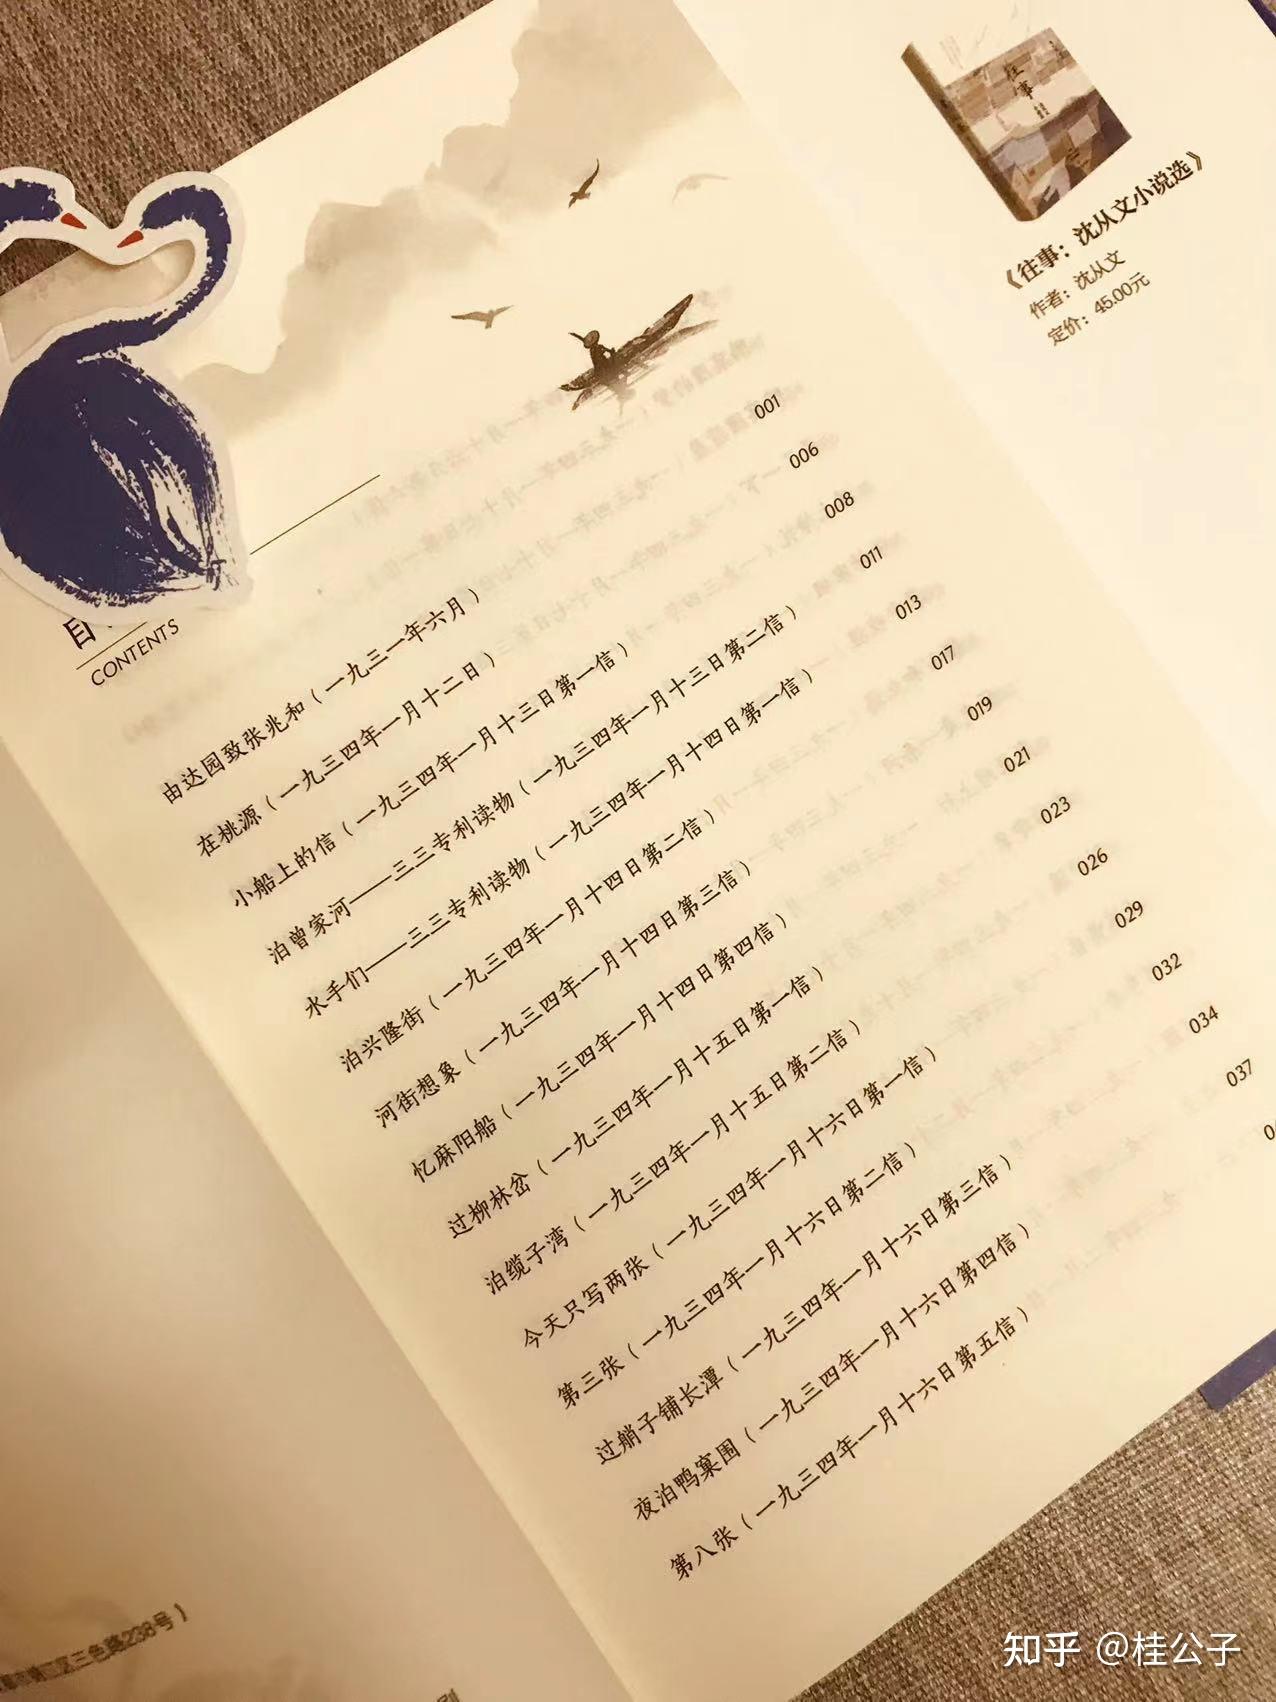 往事
《往事：沈从文小说选》
作者：沈从文
定价：45.00元
目
CONTENTS
由达园致张兆和（一九三一年六月） 001
在桃源（一九三四年一月十二日） 006
小船上的信（一九三四年一月十三日第一信） 008
泊曾家河——三三专利读物（一九三四年一月十三日第二信） 011
水手们——三三专利读物（一九三四年一月十四日第一信） 013
泊兴隆街（一九三四年一月十四日第二信） 017
河街想象（一九三四年一月十四日第三信） 019
忆麻阳船（一九三四年一月十四日第四信） 021
过柳林岔（一九三四年一月十五日第一信） 023
泊缆子湾（一九三四年一月十五日第二信） 026
今天只写两张（一九三四年一月十六日第一信） 029
第三张（一九三四年一月十六日第二信） 032
过梢子铺长潭（一九三四年一月十六日第三信） 034
夜泊鸭窠围（一九三四年一月十六日第四信） 037
第八张（一九三四年一月十六日第五信）
三色路238号）
知乎 @桂公子